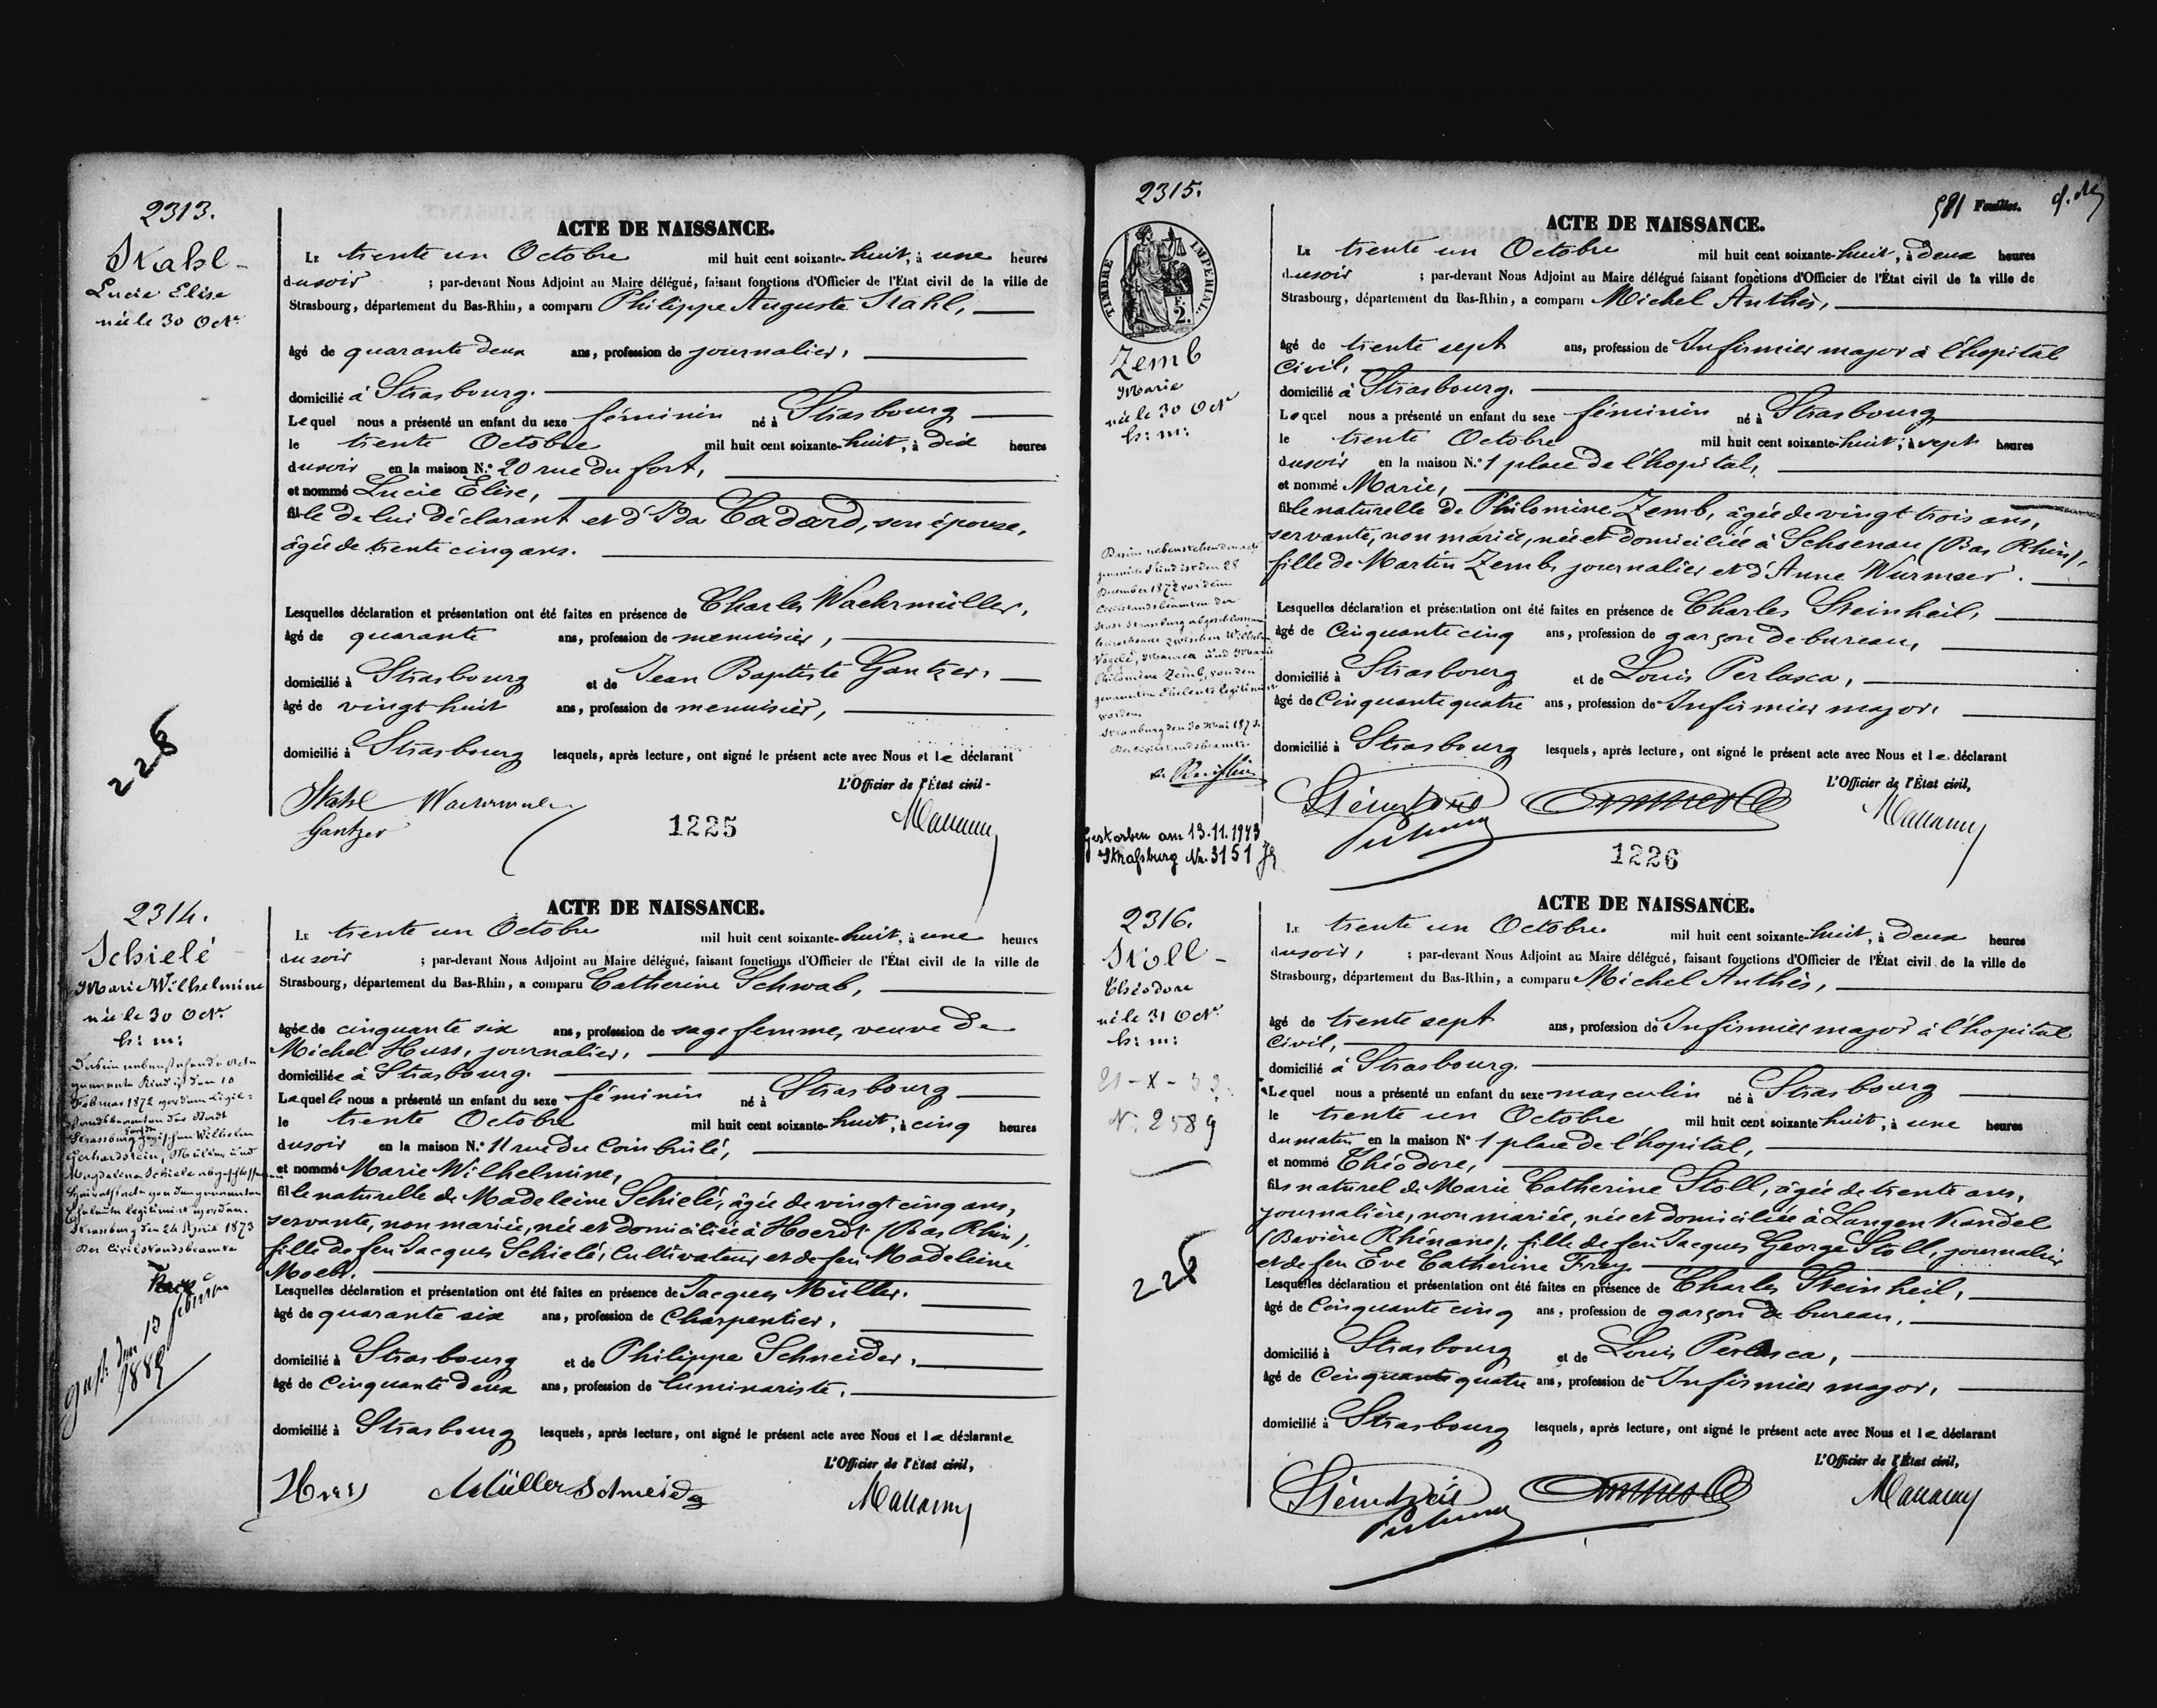 2313.
Stahl
Lucie Elise
née le 30 Oct.
226
ACTE DE NAISSANCE.
LE trente un Octobre mil huit cent soixante-huit, à une heures
du soir ; par-devant Nous Adjoint au Maire délégué, faisant fonctions d'Officier de l'État civil de la ville de
Strasbourg, département du Bas-Rhin, a comparu Philippe Auguste Stahl,
âgé de quarante deux ans, profession de journalier,
domicilié à Strasbourg.
Lequel nous a présenté un enfant du sexe féminin né à Strasbourg
le trente Octobre mil huit cent soixante-huit, à dix heures
du soir en la maison N.° 20 rue du fort,
et nommé Lucie Elise,
fille de lui déclarant et d'Ida Cadard, son épouse,
âgée de trente cinq ans.
Lesquelles déclaration et présentation ont été faites en présence de Charles Wachrmüller,
âgé de quarante ans, profession de menuisier,
domicilié à Strasbourg et de Jean Baptiste Gantzer,
âgé de vingt huit ans, profession de menuisier,
domicilié à Strasbourg lesquels, après lecture, ont signé le présent acte avec Nous et le déclarant
L'Officier de l'État civil
Stahl
Gantzer
1225
2314.
Schielé
Marie Wilhelmine
née le 30 Oct.
h: m:
10
Februar 1872
Strassburg zwischen Wilhelm
Gerhardstein, Müller und
Magdalena Schiele abgeschlossenen
Strasburg den 24 April 1873
Der Civilstandsbeamte
gest. den 13
1889
ACTE DE NAISSANCE.
LE trente un Octobre mil huit cent soixante-huit, à une heures
du soir ; par-devant Nous Adjoint au Maire délégué, faisant fonctions d'Officier de l'État civil de la ville de
Strasbourg, département du Bas-Rhin, a comparu Catherine Schwab,
âgée de cinquante six ans, profession de sage femme, veuve de
Michel Huss, journalier,
domiciliée à Strasbourg.
Laquelle nous a présenté un enfant du sexe féminin né à Strasbourg
le trente Octobre mil huit cent soixante-huit, à cinq heures
du soir en la maison N.° 11 rue du Coin brulé,
et nommé Marie Wilhelmine,
fille naturelle de Madeleine Schielé, âgée de vingt cinq ans,
servante, non mariée, née et domiciliée à Hoerdt (Bas Rhin),
fille de feu Jacques Schielé, Cultivateur et de feu Madeleine
Moebs.
Lesquelles déclaration et présentation ont été faites en présence de Jacques Müller,
âgé de quarante six ans, profession de Charpentier,
domicilié à Strasbourg et de Philippe Schneider,
âgé de Cinquante deux ans, profession de luminariste,
domicilié à Strasbourg lesquels, après lecture, ont signé le présent acte avec Nous et la déclarante
L'Officier de l'État civil,
Huss Müller Schneider
2315.
TIMBRE IMPÉRIAL
F.
2.
Zemb
Marie
née le 30 Oct
h: m:
Das im nebenstehenden Acte
genannte Kind ist den 28
Dezember 1872 vor dem
Civilstandsbeamten der
Stadt Strassburg abgeschlossenen
zwischen Wilhelm
Vogele, Maurer und Marie
Philomène Zemb, von den
genannten Eheleute legitimirt
worden.
Strassburg den 30 Mai 1873.
Der Civilstandsbeamte
Gestorben am 13.11.1943
Straßburg Nr. 3151
581 Feuillet.
ACTE DE NAISSANCE.
LE trente un Octobre mil huit cent soixante-huit, à deux heures
du soir ; par-devant Nous Adjoint au Maire délégué faisant fonctions d'Officier de l'État civil de la ville de
Strasbourg, département du Bas-Rhin, a comparu Michel Anthès,
âgé de trente sept ans, profession de Infirmier major à l'hopital
Civil,
domicilié à Strasbourg.
Lequel nous a présenté un enfant du sexe féminin né à Strasbourg
le trente Octobre mil huit cent soixante-huit, à sept heures
du soir en la maison N.° 1 place de l'hopital,
et nommé Marie,
fille naturelle de Philomène Zemb, âgée de vingt trois ans,
servante, non mariée, née et domiciliée à Schoenau (Bas Rhin),
fille de Martin Zemb, journalier et d'Anne Wurmser.
Lesquelles déclaration et présentation ont été faites en présence de Charles Steinheil,
âgé de Cinquante cinq ans, profession de garçon de bureau,
domicilié à Strasbourg et de Louis Perlasca,
âgé de Cinquante quatre ans, profession de Infirmier major,
domicilié à Strasbourg lesquels, après lecture, ont signé le présent acte avec Nous et le déclarant
L'Officier de l'État civil,
1226
2316.
Stoll
Théodore
né le 31 Oct.
h: m:
N. 2589
226
ACTE DE NAISSANCE.
LE trente un Octobre mil huit cent soixante-huit, à deux heures
du soir, ; par-devant Nous Adjoint au Maire délégué, faisant fonctions d'Officier de l'État civil de la ville de
Strasbourg, département du Bas-Rhin, a comparu Michel Anthès,
âgé de trente sept ans, profession de Infirmier major à l'hopital
Civil,
domicilié à Strasbourg.
Lequel nous a présenté un enfant du sexe masculin né à Strasbourg
le trente un Octobre mil huit cent soixante-huit, à une heures
du matin en la maison N° 1 place de l'hopital,
et nommé Théodore,
fils naturel de Marie Catherine Stoll, âgée de trente ans,
journalière, non mariée, née et domiciliée à Langen Kandel
(Bavière Rhénane), fille de feu Jacques George Stoll, journalier
et de feu Eve Catherine Frey
Lesquelles déclaration et présentation ont été faites en présence de Charles Steinheil,
âgé de Cinquante cinq ans, profession de garçon de bureau,
domicilié à Strasbourg et de Louis Perlasca,
âgé de Cinquante quatre ans, profession de Infirmier major,
domicilié à Strasbourg lesquels, après lecture, ont signé le présent acte avec Nous et le déclarant
L'Officier de l'État civil,